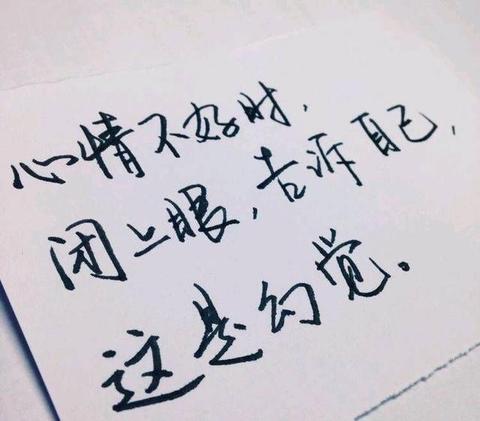 心情不好时,
闭上眼,告诉自己,
这是幻觉。